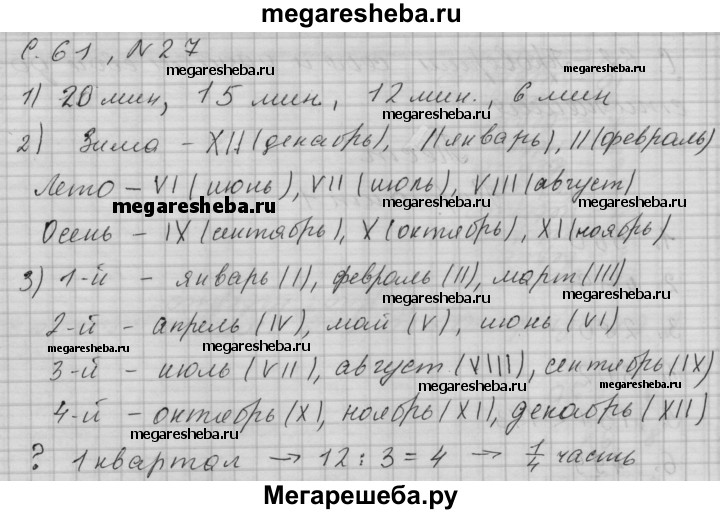 megaresheba.ru
С. 61, N 27
megaresheba.ru
1) 20 мин, 15 мин., 12 мин., 6 мин
megaresheba.ru
megaresheba.ru
2) Зима – XII (декабрь), I (январь), II (февраль)
megaresheba.ru
Лето – VI (июнь), VII (июль), VIII (август)
megaresheba.ru
megaresheba.ru
Осень – IX (сентябрь), X (октябрь), XI (ноябрь)
3) 1-й – январь (I), февраль (II), март (III)
megaresheba.ru
megaresheba.ru
2-й – апрель (IV), май (V), июнь (VI)
megaresheba.ru
megaresheba.ru
3-й – июль (VII), август (VIII), сентябрь (IX)
megaresheba.ru
megaresheba.ru
4-й – октябрь (X), ноябрь (XI), декабрь (XII)
megaresheba.ru
megaresheba.ru
? 1 квартал → 12 : 3 = 4 → 1/4 часть
Мегарешеба.ру